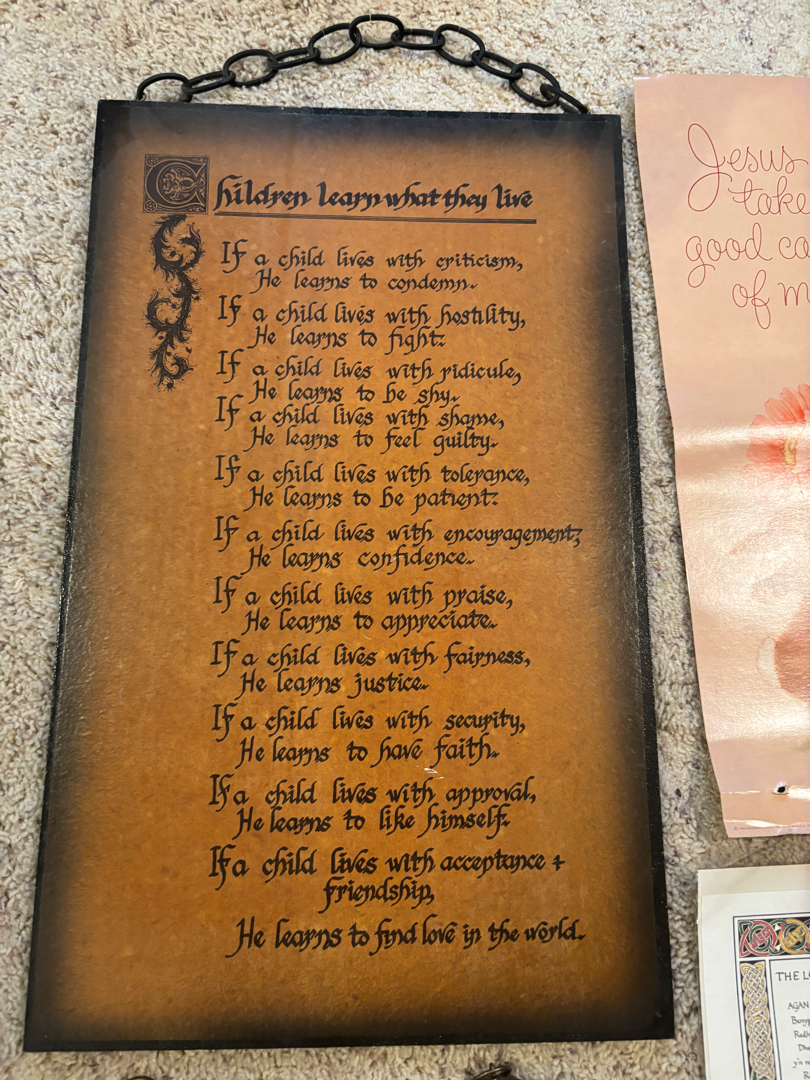 Children learn what they live
If a child lives with criticism,
He learns to condemn.
If a child lives with hostility,
He learns to fight.
If a child lives with ridicule,
He learns to be shy.
If a child lives with shame,
He learns to feel guilty.
If a child lives with tolerance,
He learns to be patient.
If a child lives with encouragement,
He learns confidence.
If a child lives with praise,
He learns to appreciate.
If a child lives with fairness,
He learns justice.
If a child lives with security,
He learns to have faith.
If a child lives with approval,
He learns to like himself.
If a child lives with acceptance +
friendship,
He learns to find love in the world.
Jesus
take
good ca
of m
THE LO
AGAN